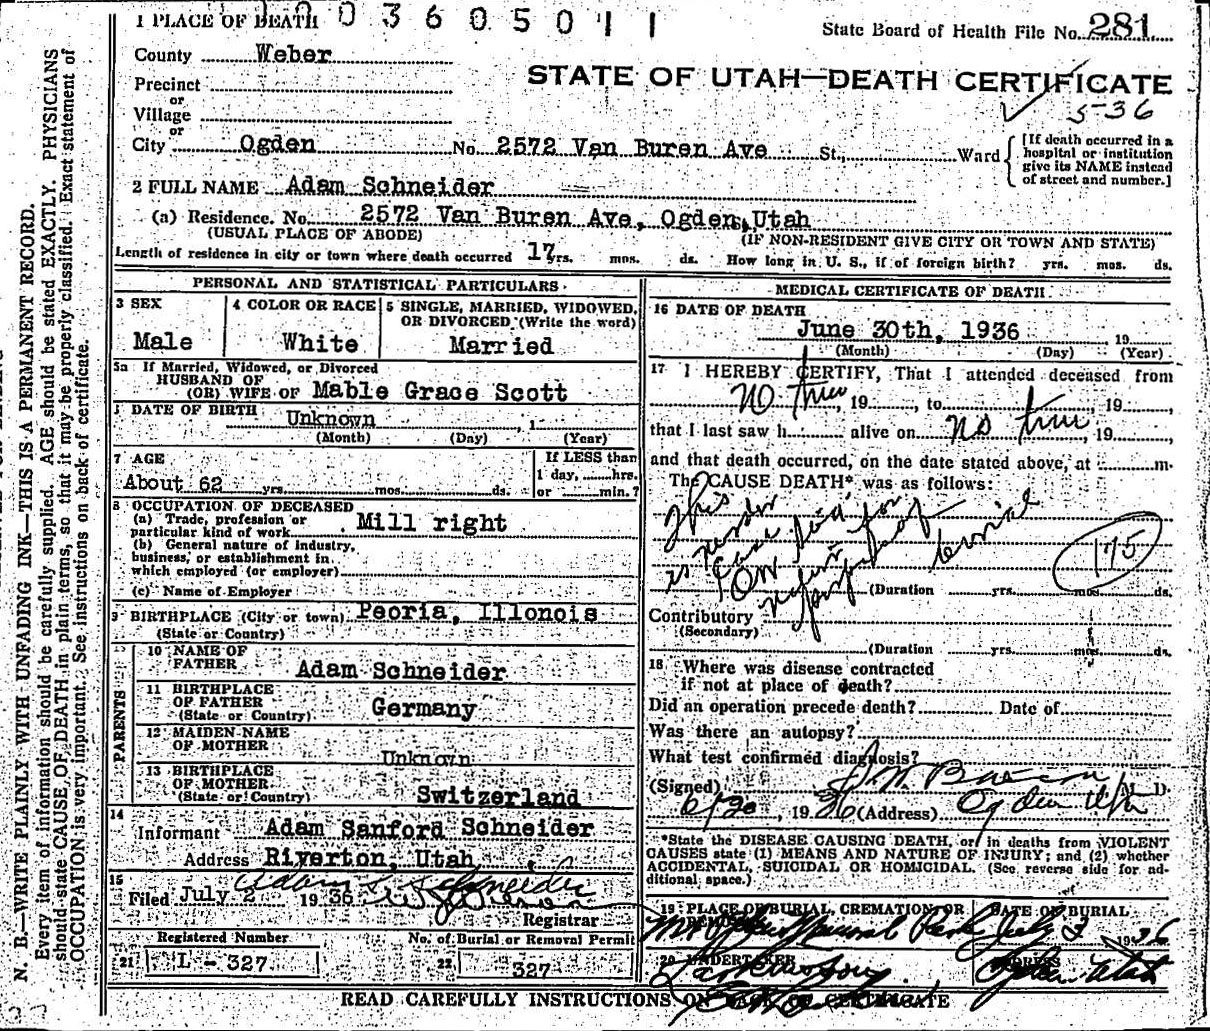 0 0 3 6 0 5 0 1 1
1 PLACE OF DEATH
State Board of Health File No. 281
County Weber
STATE OF UTAH—DEATH CERTIFICATE
Precinct
or
Village
5-36
or
City Ogden No. 2572 Van Buren Ave St., Ward
[If death occurred in a
hospital or institution
give its NAME instead
of street and number.]
2 FULL NAME Adam Schneider
(a) Residence. No. 2572 Van Buren Ave, Ogden, Utah
(USUAL PLACE OF ABODE) (IF NON-RESIDENT GIVE CITY OR TOWN AND STATE)
Length of residence in city or town where death occurred 17 yrs. mos. ds. How long in U. S., if of foreign birth? yrs. mos. ds.
PERSONAL AND STATISTICAL PARTICULARS
3 SEX
Male
4 COLOR OR RACE
White
5 SINGLE, MARRIED, WIDOWED,
OR DIVORCED (Write the word)
Married
5a If Married, Widowed, or Divorced
HUSBAND OF
(OR) WIFE OF Mable Grace Scott
DATE OF BIRTH Unknown , 1
(Month) (Day) (Year)
7 AGE
About 62 yrs. mos. ds.
If LESS than
1 day, hrs.
or min.?
8 OCCUPATION OF DECEASED
(a) Trade, profession or
particular kind of work Mill right
(b) General nature of industry,
business, or establishment in
which employed (or employer)
(c) Name of Employer
9 BIRTHPLACE (City or town) Peoria, Illonois
(State or Country)
PARENTS
10 NAME OF
FATHER Adam Schneider
11 BIRTHPLACE
OF FATHER
(State or Country) Germany
12 MAIDEN NAME
OF MOTHER Unknown
13 BIRTHPLACE
OF MOTHER
(State or Country) Switzerland
14
Informant Adam Sanford Schneider
Address Riverton, Utah
15
Filed July 2 1936
Registrar
Registered Number
21 L - 327
No. of Burial or Removal Permit
22 327
MEDICAL CERTIFICATE OF DEATH
16 DATE OF DEATH
June 30th, 1936 19
(Month) (Day) (Year)
17 I HEREBY CERTIFY, That I attended deceased from
No time, 19 , to , 19 ,
that I last saw h alive on no time, 19 ,
and that death occurred, on the date stated above, at m.
The CAUSE DEATH* was as follows:
This
is
175
(Duration yrs. mos. ds.
Contributory
(Secondary)
(Duration yrs. mos. ds.
18 Where was disease contracted
if not at place of death?
Did an operation precede death? Date of
Was there an autopsy?
What test confirmed diagnosis?
(Signed) M. D.
6/30, 1936 (Address) Ogden Utah
*State the DISEASE CAUSING DEATH, or in deaths from VIOLENT
CAUSES state (1) MEANS AND NATURE OF INJURY; and (2) whether
ACCIDENTAL, SUICIDAL OR HOMICIDAL. (See reverse side for ad-
ditional space.)
19 PLACE OF BURIAL, CREMATION OR
DATE OF BURIAL
July 3 1936
20 UNDERTAKER
ADDRESS
Ogden Utah
READ CAREFULLY INSTRUCTIONS ON BACK OF CERTIFICATE
N. B.—WRITE PLAINLY WITH UNFADING INK—THIS IS A PERMANENT RECORD.
Every item of information should be carefully supplied. AGE should be stated EXACTLY. PHYSICIANS
should state CAUSE OF DEATH in plain terms, so that it may be properly classified. Exact statement of
OCCUPATION is very important. See instructions on back of certificate.